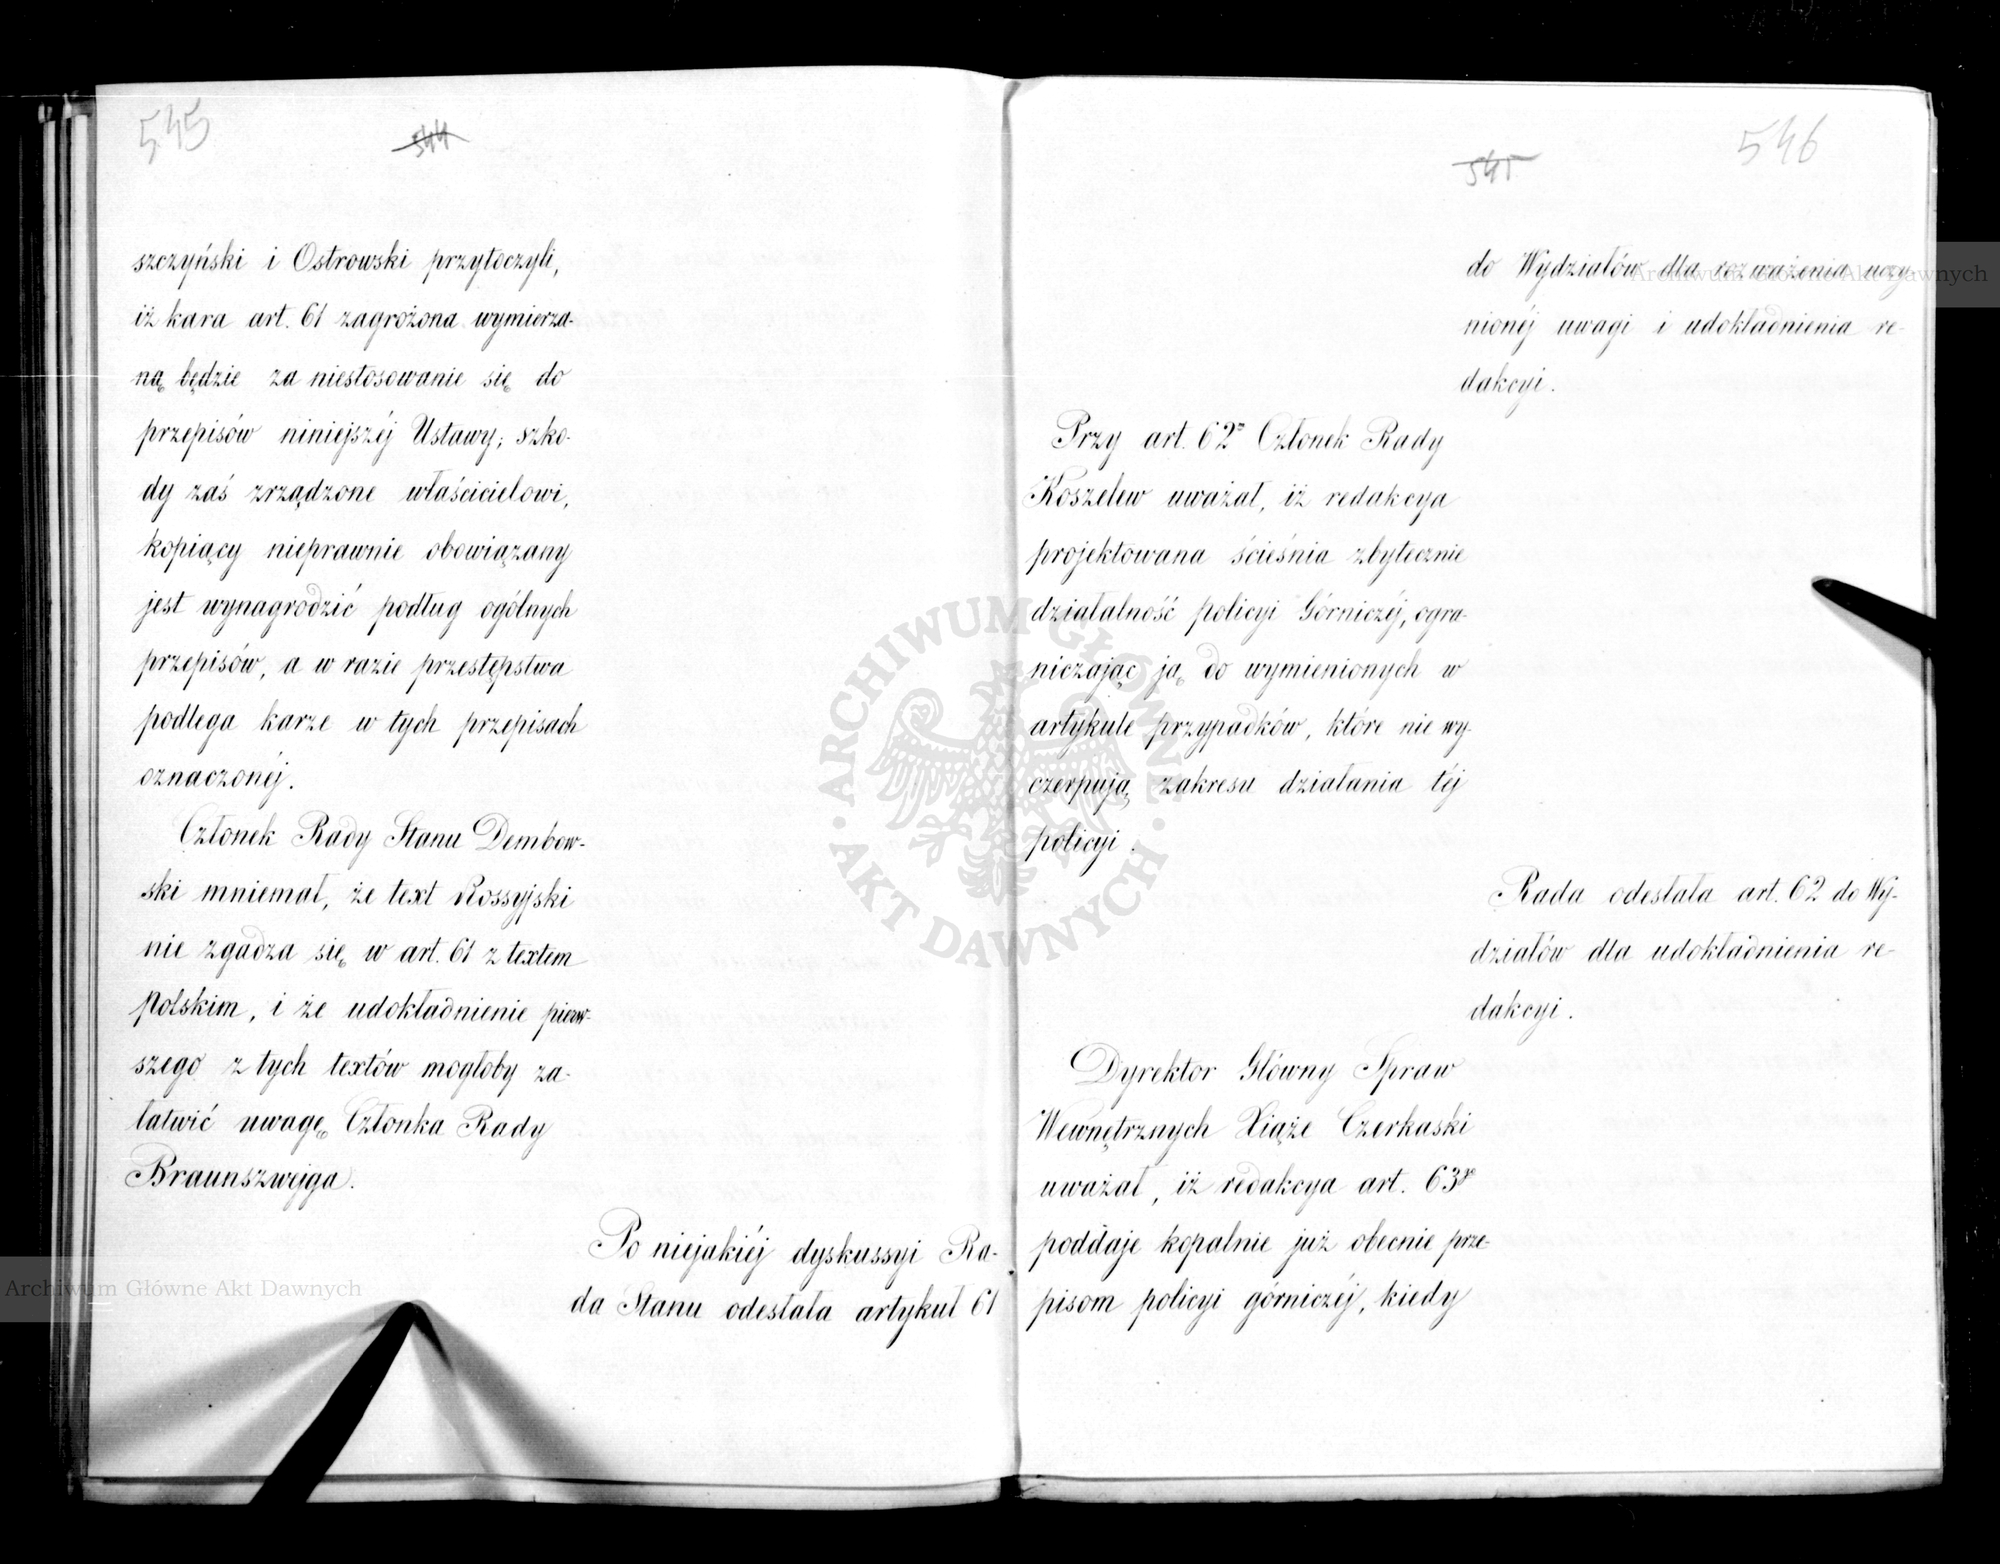 545
544
szczyński i Ostrowski przytoczyli,
iż kara art. 61 zagrożona wymierza-
ną będzie za niestosowanie się do
przepisów niniejszéj Ustawy; szko-
dy zaś zrządzone właścicielowi,
kopiący nieprawnie obowiązany
jest wynagrodzić podług ogólnych
przepisów, a w razie przestępstwa
podlega karze w tych przepisach
oznaczonéj.
Członek Rady Stanu Dembow-
ski mniemał, że text Rossyjski
nie zgadza się w art. 61 z textem
Polskim, i że udokładnienie pierw-
szego z tych textów mogłoby za-
łatwić uwagę Członka Rady
Braunszwejga.
Po niejakiéj dyskussyi Ra-
da Stanu odesłała artykuł 61
546
545
do Wydziałów dla rozważenia uczy-
nionéj uwagi i udokładnienia re-
dakcyi.
Przy art. 62 Członek Rady
Koszelew uważał, iż redakcya
projektowana ścieśnia zbytecznie
działalność policyi Górniczéj, ogra-
niczając ją do wymienionych w
artykule przypadków, które nie wy-
czerpują zakresu działania téj
policyi.
Rada odesłała art. 62 do Wy-
działów dla udokładnienia re-
dakcyi.
Dyrektor Główny Spraw
Wewnętrznych Xiąże Czerkaski
uważał, iż redakcya art. 63go
poddaje kopalnie już obecnie prze-
pisom policyi górniczéj, kiedy
ARCHIWUM GŁÓWNE AKT DAWNYCH
Archiwum Główne Akt Dawnych
Archiwum Główne Akt Dawnych